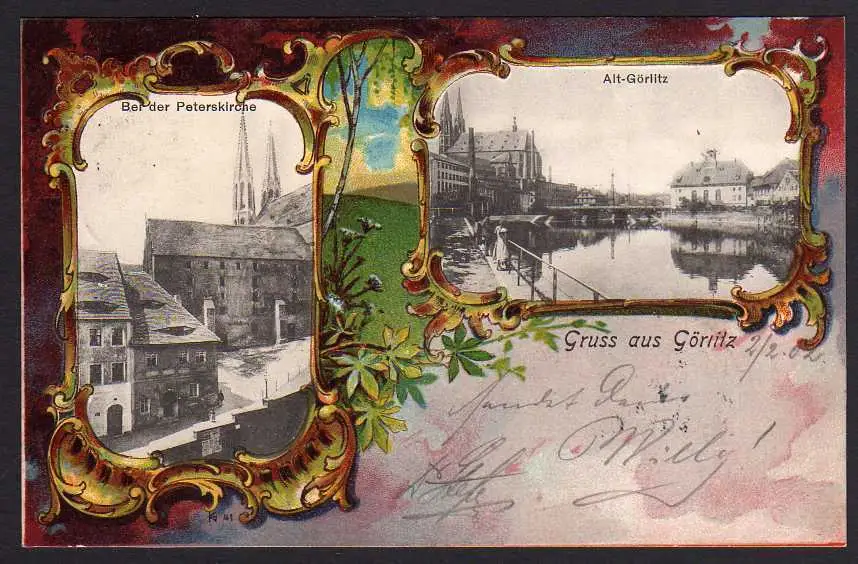 Bei der Peterskirche
Alt-Görlitz
Gruss aus Görlitz
2/2.02
sendet Dein
Willy!